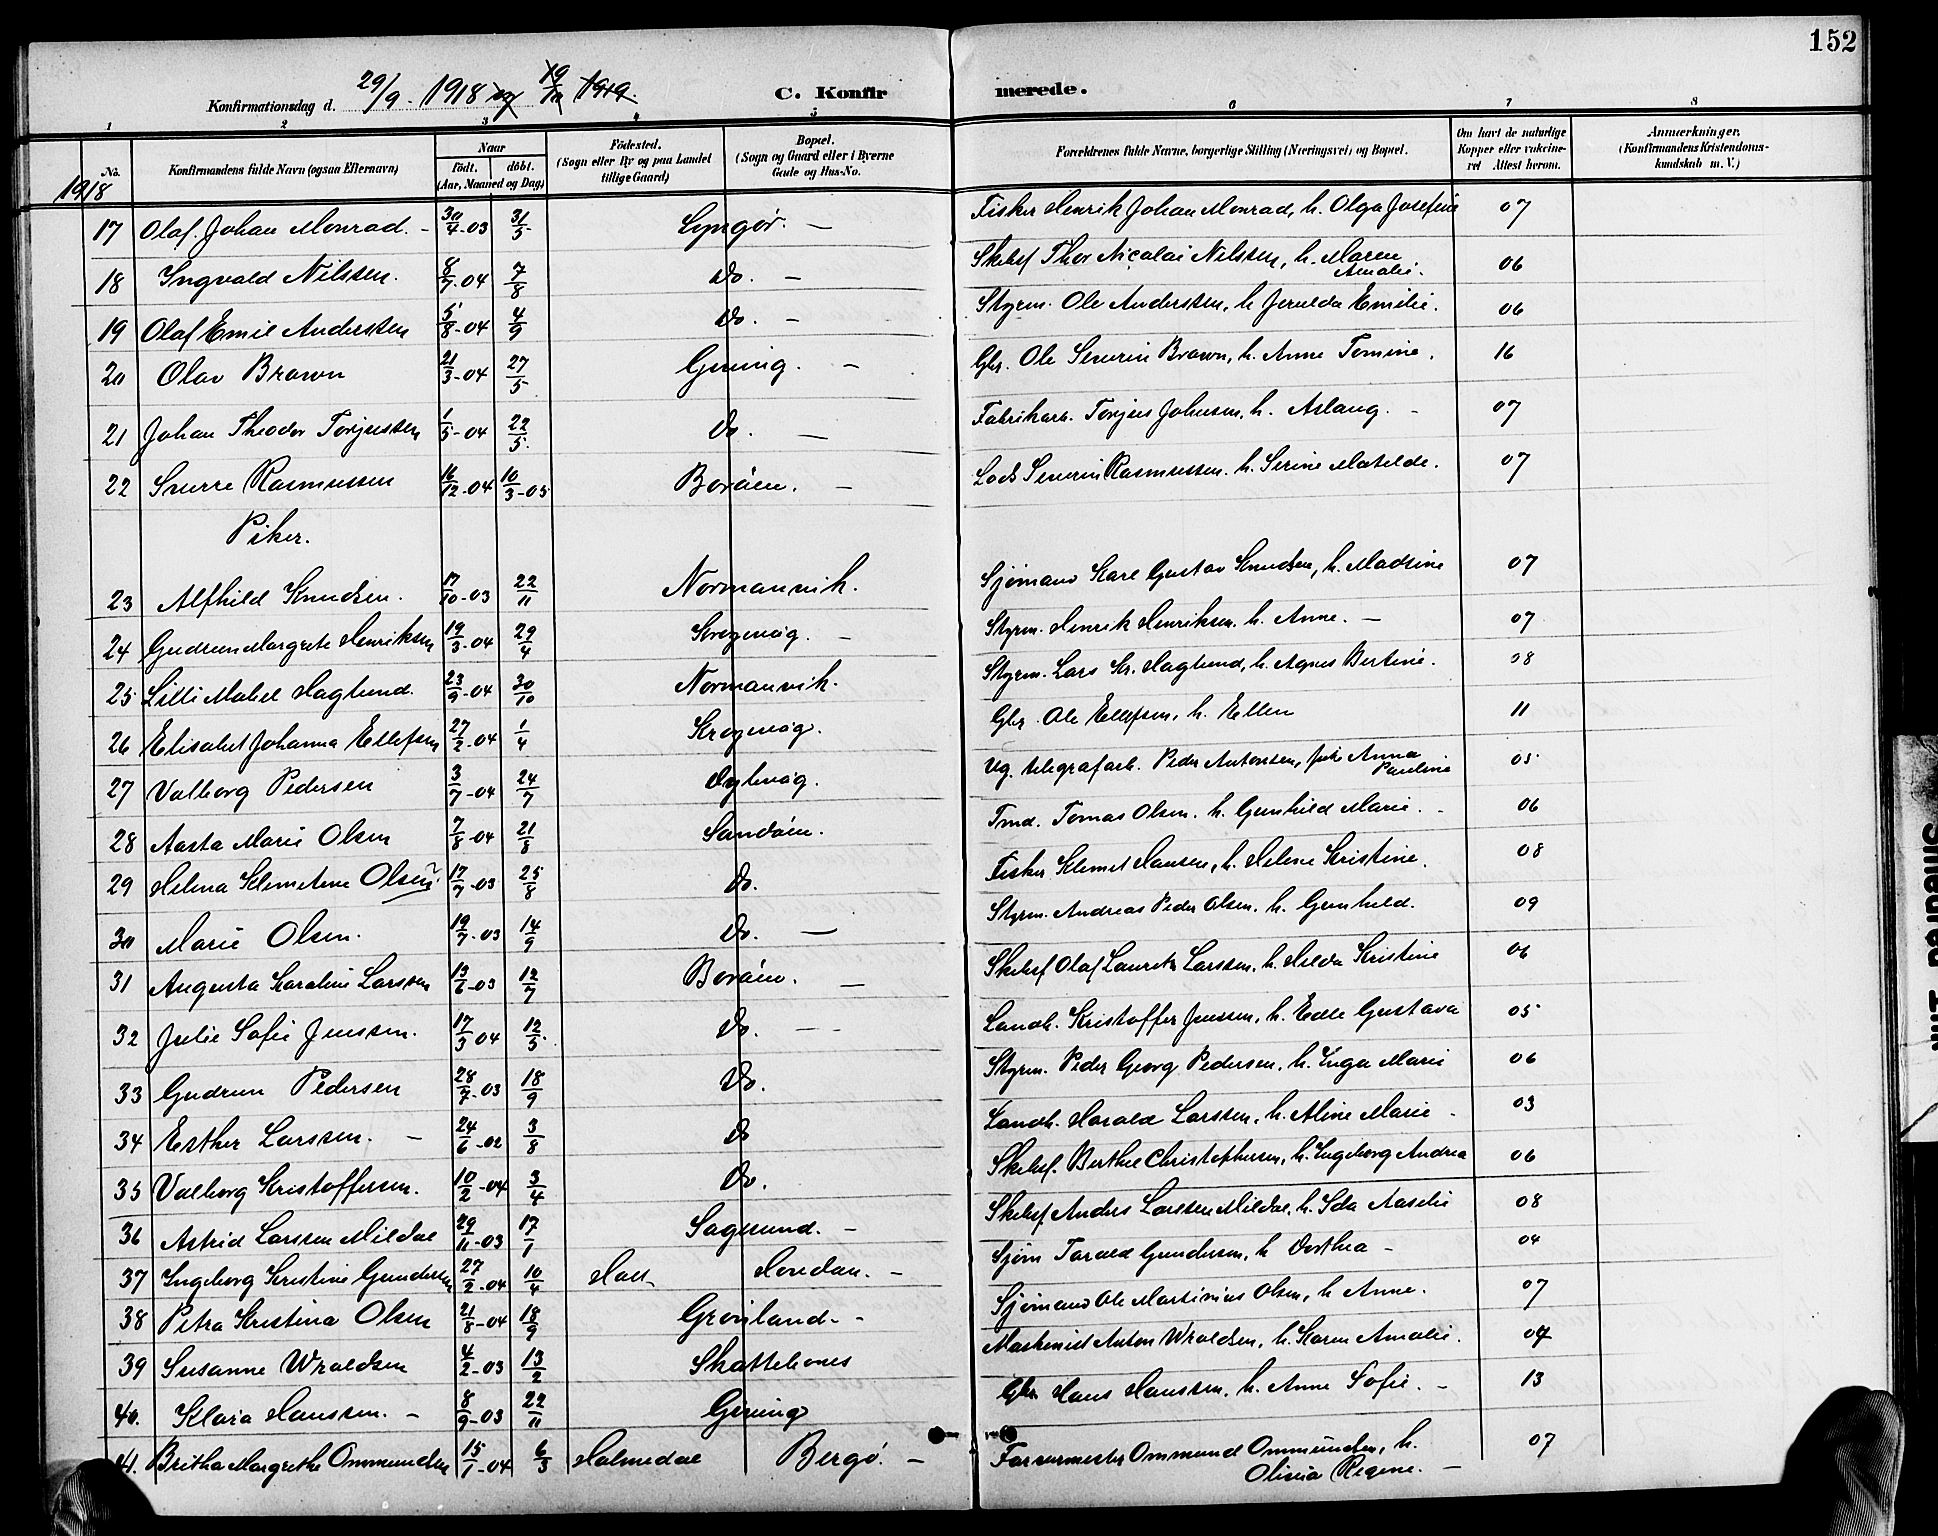 152
Konfirmationsdag d. 29/9. 1918 og 19/10 1919.
C. Konfirmerede.
1 2 3 4 5 6 7 8
No. Konfirmandens fulde Navn (ogsaa Efternavn) Naar Födt. döbt. (Aar, Maaned og Dag) Födested. (Sogn eller By og paa Landet tillige Gaard) Bopæl. (Sogn og Gaard eller i Byerne Gade og Hus-No. Forældrenes fulde Navne, borgerlige Stilling (Næringsvei) og Bopæl. Om havt de naturlige Kopper eller vakcineret Attest herom. Anmærkninger. (Konfirmandens Kristendomskundskab m. V.)
1918
17 Olaf Johan Monrad. - 30/4-03 31/5 Lyngør. - Fisker Henrik Johan Monrad, h. Olga Josefine 07
18 Ingvald Nilssen. 8/7-04 7/8 Do. - Skibsf Thor Nicolai Nilssen, h. Maren Amalie. 06
19 Olaf Emil Anderssen 5/8-04 4/9 Do. - Styrm. Ole Anderssen, h. Emilie. 06
20 Olav Brawn 21/3-04 27/5 Gjeving. - Gbr. Ole Severin Brawn, h. Anne Tomine. 16
21 Johan Theodor Torjussen 1/5-04 22/5. Do. - Fabrikarb. Torjus Johnsen, h. Aslaug. - 07
22 Sverre Rasmussen 16/12-04 10/3-05 Borøen. - Lods Severin Rasmussen. h. Serine Matilde. 07
Piker.
23 Alfhild Knudsen. 17/10-03 22/11 Normanvik. Sjømand Karl Gustav Knudsen, h. Madsine 07
24 Gudrun Margrete Henriksen 19/3-04 29/4 Krogevåg. - Styrm. Henrik Henriksen. h. Anne. - 07
25 Lilli Mabel Haglund. 23/9-04 30/10 Normanvik. Styrm. Lars Kr. Haglund, h. Agnes Bertine. 08
26 Elisabet Johanna Ellefsen 27/2-04 1/4 Krogevåg. Gbr. Ole Ellefsen, h. Ellen 11
27 Valborg Pedersen 3/7-04 24/7 Dybvåg. Ug. telegrafarb. Peder Antonsen, Anna Pauline 05
28 Aasta Marie Olsen 7/8-04 21/8 Sandøen. Tmd. Tomas Olsen. h. Gunhild Marie. - 06
29 Helena Klemetine Olsen? 17/7-03 25/8 Do. Fisker Klemet Hansen, h. Helene Kristine. 08
30 Marie Olsen. 19/7-03 14/9 Do. - Styrm. Andreas Peder Olsen. h. Gunhild. 09
31 Augusta Karoline Larssen 13/6-03 12/7 Borøen. - Skibsf Olaf Lauritz Larssen, h. Hilda Kristine 06
32 Julie Sofie Jenssen. 17/3 04 12/5. Do. - Landh. Kristoffer Jenssen, h. Edle Gustava 05
33 Gudrun Pedersen 28/7-03 18/9 Do. Styrm. Peder Georg Pedersen, h. Inga Marie 06
34 Esther Larssen. - 24/6-02 3/8 Do Landh. Harald Larssen, h. Aline Marie - 03
35 Valborg Kristoffersen. 10/2-04 3/4 Do. Skibsf. Berthel Christophersen, h. Ingeborg Andrea 06
36 Astrid Larssen Mildal 29/11-03 17/1 Sagesund. - Skibsf Anders Larssen Mildal, h. Ida Aaselie 08
37 Ingeborg Kristine Gundersen 27/2-04 10/4 Holt Hovedan. - Sjøm Tarald Gundersen, h Dorthea - 04
38 Petra Kristina Olsen 21/8-04 18/9 Grønland. - Sjømand Ole Martinius Olsen, h Anne. 07
39 Susanne Wroldsen 4/2-03 13/2 Skattebones Maskinist Anton Wroldsen, h. Karen Amalie. 07
40. Klara Hanssen. - 8/9-03 22/11 Gjeving Gbr. Hans Hanssen, h. Anne Sofie. - 13
41. Britha Margrethe Ommundsen 15/1-04 6/3 Holmedal Bergø. - Farvermester Ommund Ommundsen, h. Olivia Regine. - 07